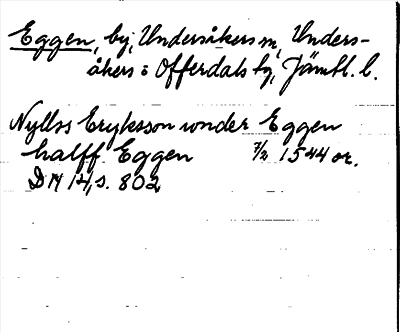 Eggen, by, Undersåkers sn, Unders-
åkers o Offerdals tg, Jämtl. l.
Nyllss Eryksson wnder Eggen
halff Eggen 7/2 1544 or.
DN 14, s. 802